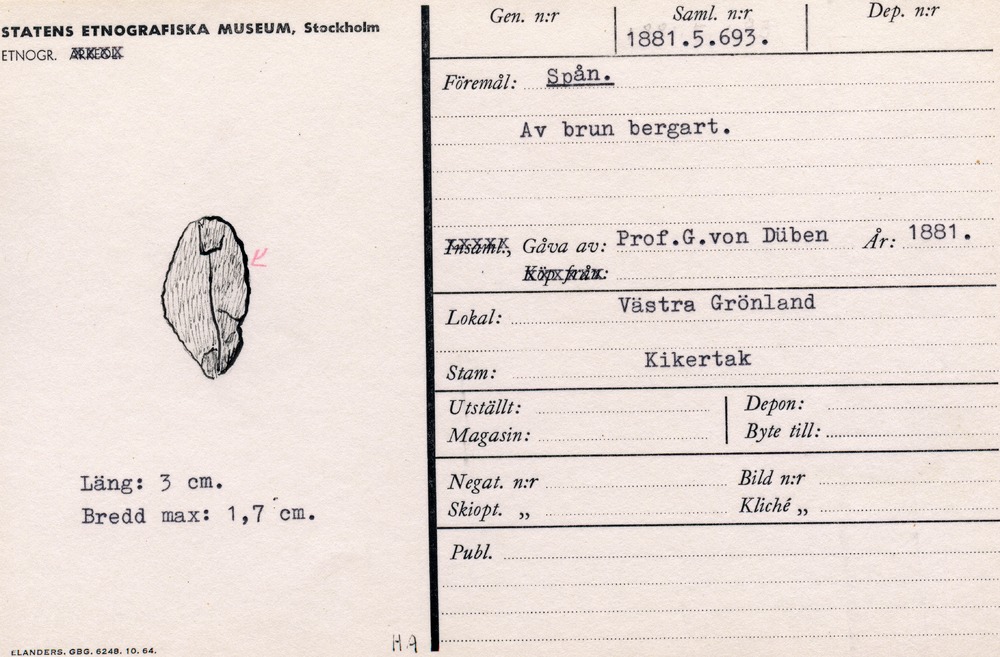 STATENS ETNOGRAFISKA MUSEUM, Stockholm
ETNOGR. ARKEOL.
Läng: 3 cm.
Bredd max: 1,7 cm.
ELANDERS. GBG. 6248. 10. 64.
HA
Gen. n:r Saml. n:r Dep. n:r
1881.5.693.
Föremål: Spån.
Av brun bergart.
Insaml., Gåva av: Prof.G.von Düben År: 1881.
Köp från:
Lokal: Västra Grönland
Stam: Kikertak
Utställt: Depon:
Magasin: Byte till:
Negat. n:r Bild n:r
Skiopt. „ Kliché „
Publ.